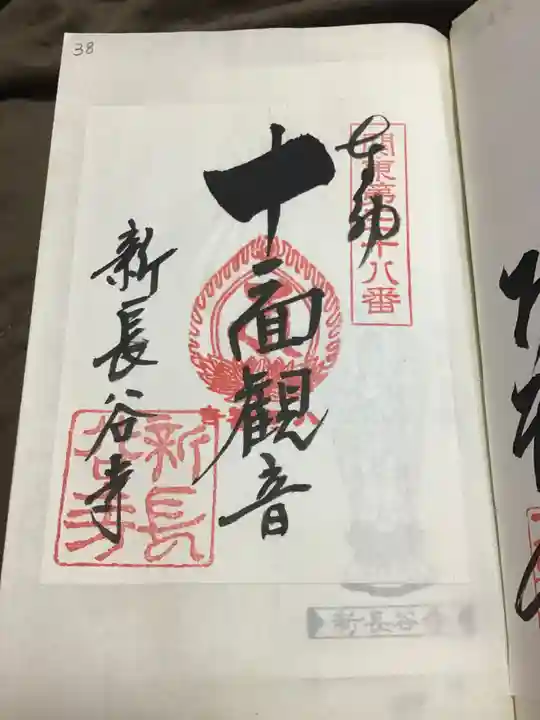 38
奉拝
関東第三十八番
十一面観音
新長谷寺
新長谷寺
新長谷寺